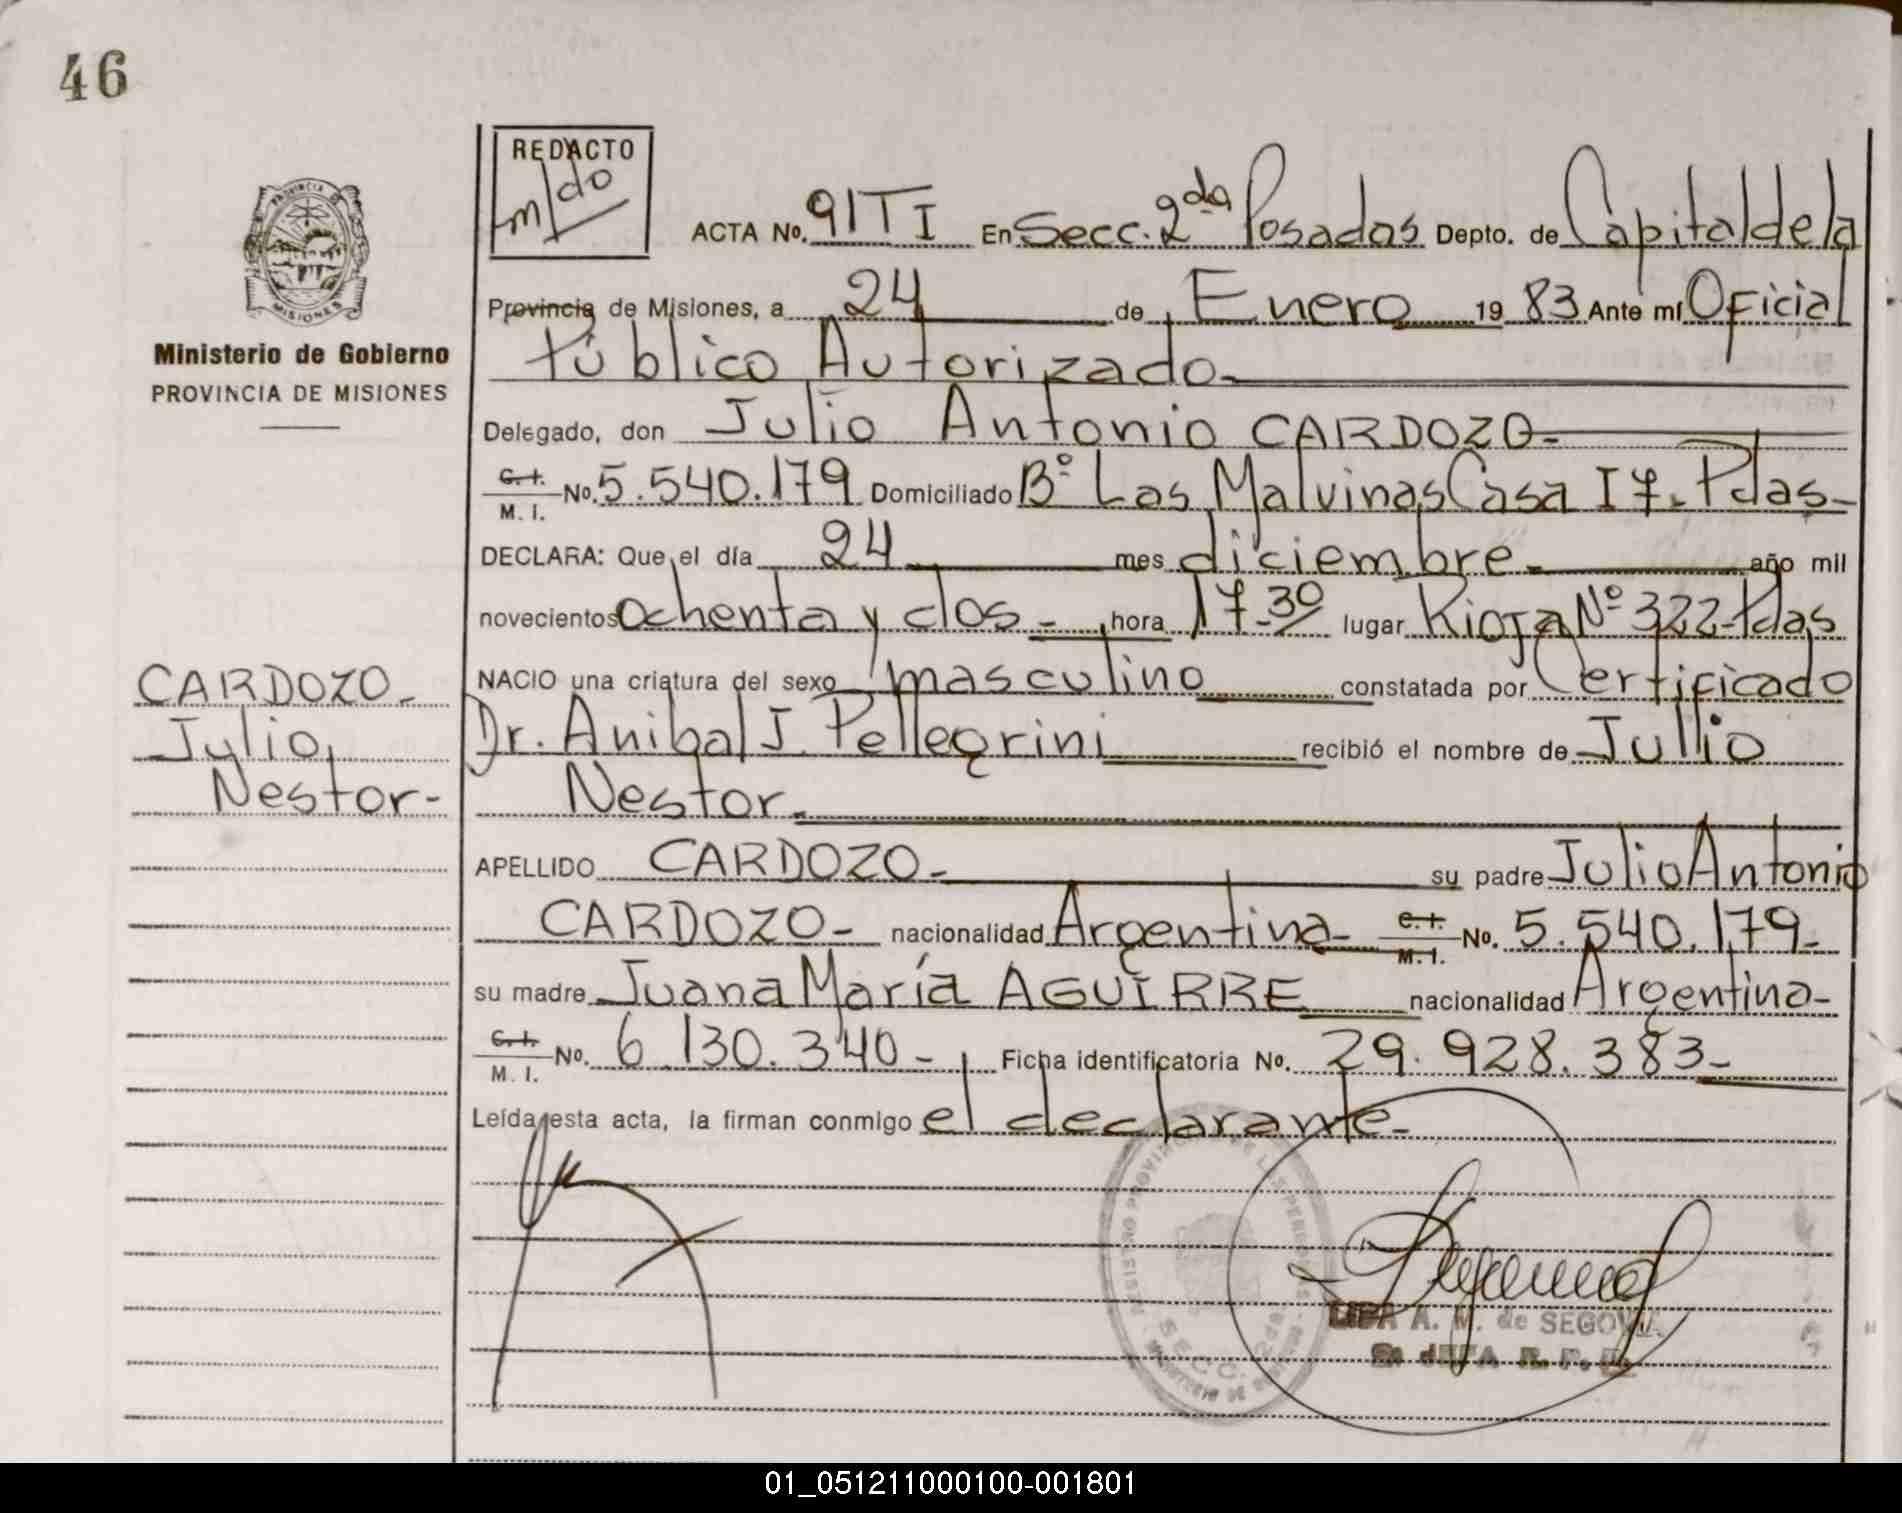 46
REDACTO
m/do
PROVINCIA DE MISIONES
ACTA No. 91TI En Secc. 2da Posadas Depto. de Capital de la
Provincia de Misiones, a 24 de Enero 1983 Ante mí Oficial
Ministerio de Gobierno
PROVINCIA DE MISIONES
Público Autorizado-
Delegado, don Julio Antonio CARDOZO-
C.I. M.I. No. 5.540.179 Domiciliado Bº Las Malvinas Casa 17- Pdas-
DECLARA: Que el día 24 mes diciembre- año mil
novecientos ochenta y dos- hora 17-30 lugar Rioja Nº 322-Pdas
NACIO una criatura del sexo masculino constatada por Certificado
CARDOZO-
Julio
Nestor-
Dr. Anibal J. Pellegrini recibió el nombre de Julio
Nestor-
APELLIDO CARDOZO- su padre Julio Antonio
CARDOZO- nacionalidad Argentina- C.I. M.I. No. 5.540.179-
su madre Juana María AGUIRRE nacionalidad Argentina-
C.I. M.I. No. 6.130.340- Ficha identificatoria No. 29.928.383-
Leída esta acta, la firman conmigo el declarante-
A. M. de SEGOVIA
SECC. 2da
01_051211000100-001801